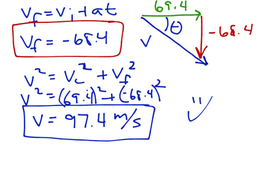 Vf = Vi + at
Vf = -68.4
69.4
θ
V
-68.4
V² = Vc² + Vf²
V² = (69.4)² + (-68.4)²
V = 97.4 m/s